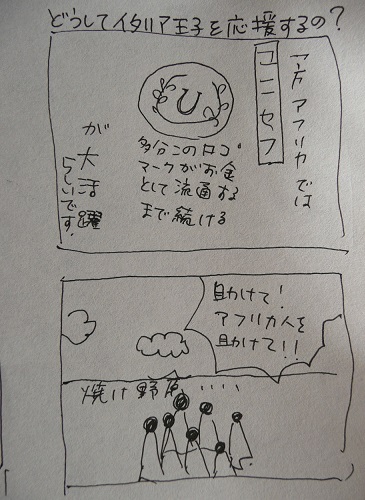 どうしてイタリア王子を応援するの？
一方アフリカでは
ユニセフ
U
多分このロゴ
マークがお金
として流通する
まで続ける
が大活躍
らしいです。
助けて！
アフリカ人を
助けて！！
焼け野原‥‥